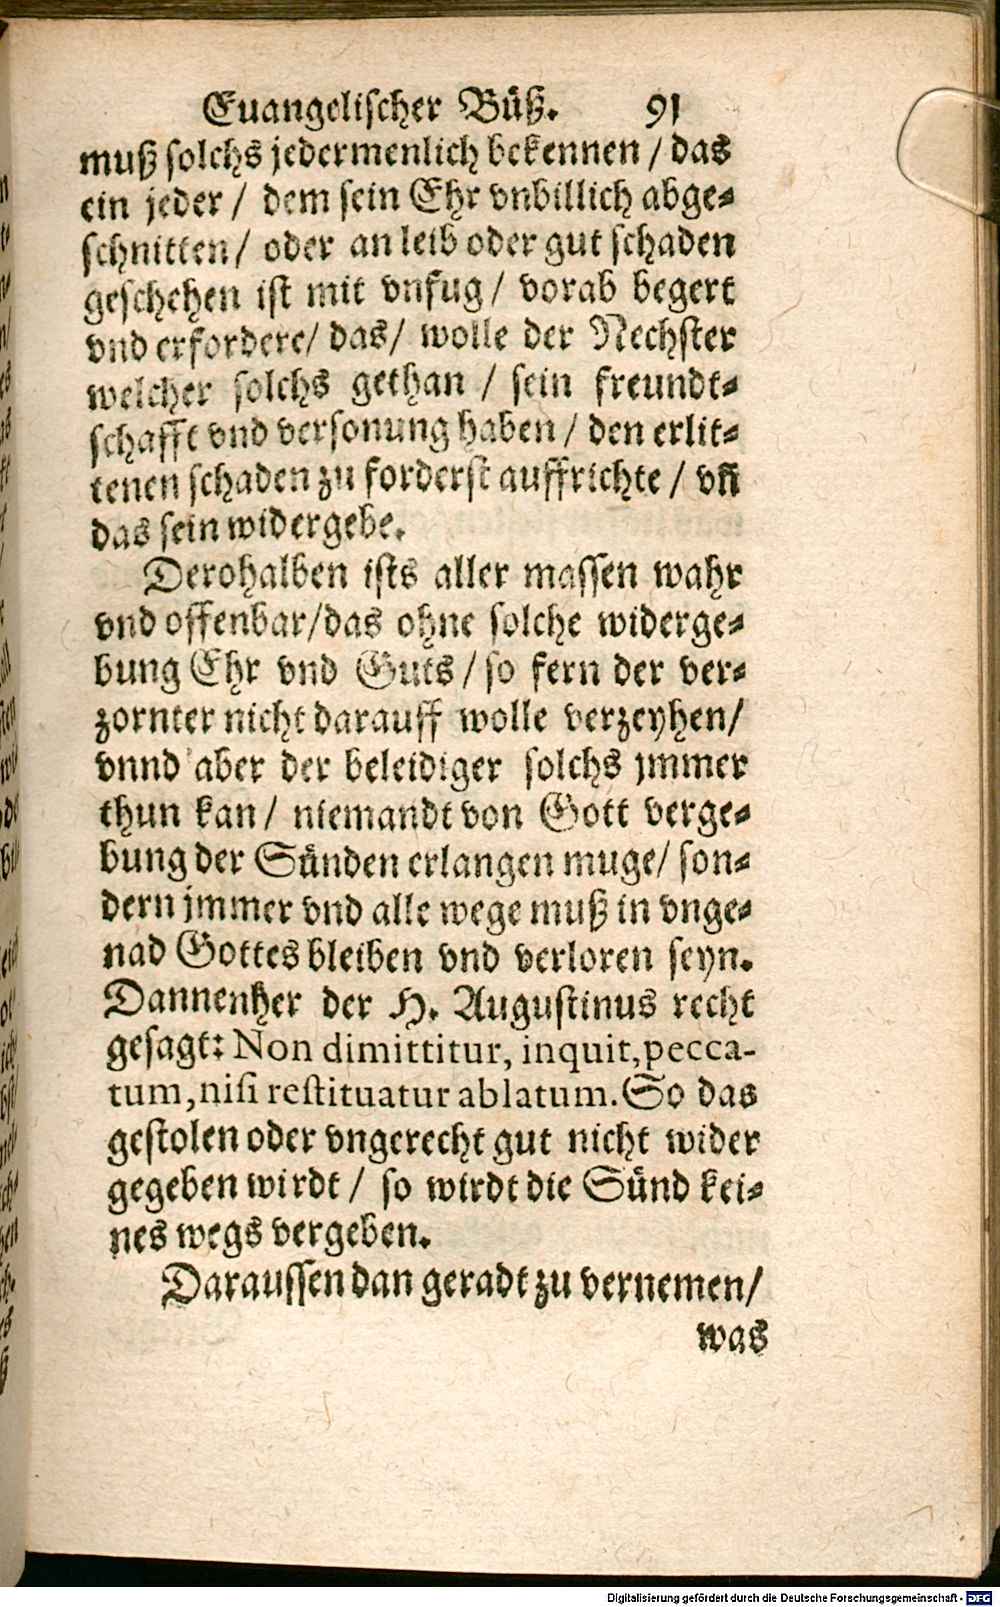 Euangelischer Büß. 91
muß solchs jedermenlich bekennen / das
ein jeder / dem sein Ehr vnbillich abge⸗
schnitten / oder an leib oder gut schaden
geschehen ist mit vnfug / vorab begert
vnd erfordere / das / wolle der Nechster
welcher solchs gethan / sein freundt⸗
schafft vnd versonung haben / den erlit⸗
tenen schaden zu forderst auffrichte / vñ
das sein widergebe.
Derohalben ists aller massen wahr
vnd offenbar / das ohne solche widerge⸗
bung Ehr vnd Guts / so fern der ver⸗
zornter nicht darauff wolle verzeyhen /
vnnd aber der beleidiger solchs jmmer
thun kan / niemandt von Gott verge⸗
bung der Sünden erlangen muge / son⸗
dern jmmer vnd alle wege muß in vnge⸗
nad Gottes bleiben vnd verloren seyn.
Dannenher der H. Augustinus recht
gesagt: Non dimittitur, inquit, pecca-
tum, nisi restituatur ablatum. So das
gestolen oder vngerecht gut nicht wider
gegeben wirdt / so wirdt die Sünd kei⸗
nes wegs vergeben.
Daraussen dan geradt zu vernemen /
was
Digitalisierung gefördert durch die Deutsche Forschungsgemeinschaft - DFG